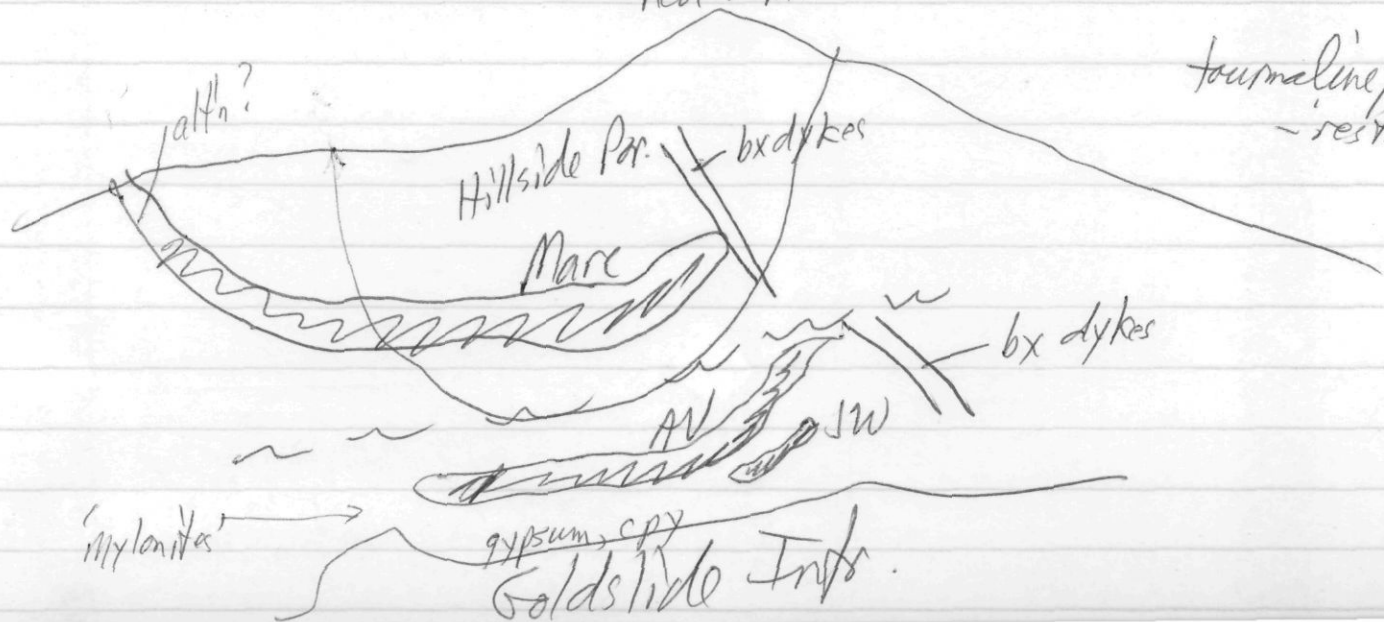 tourmaline,
alt'n?
Hillside Por.
bx dykes
Marc
bx dykes
AV
JW
'mylonites'
gypsum, cpy
Goldslide Intr.